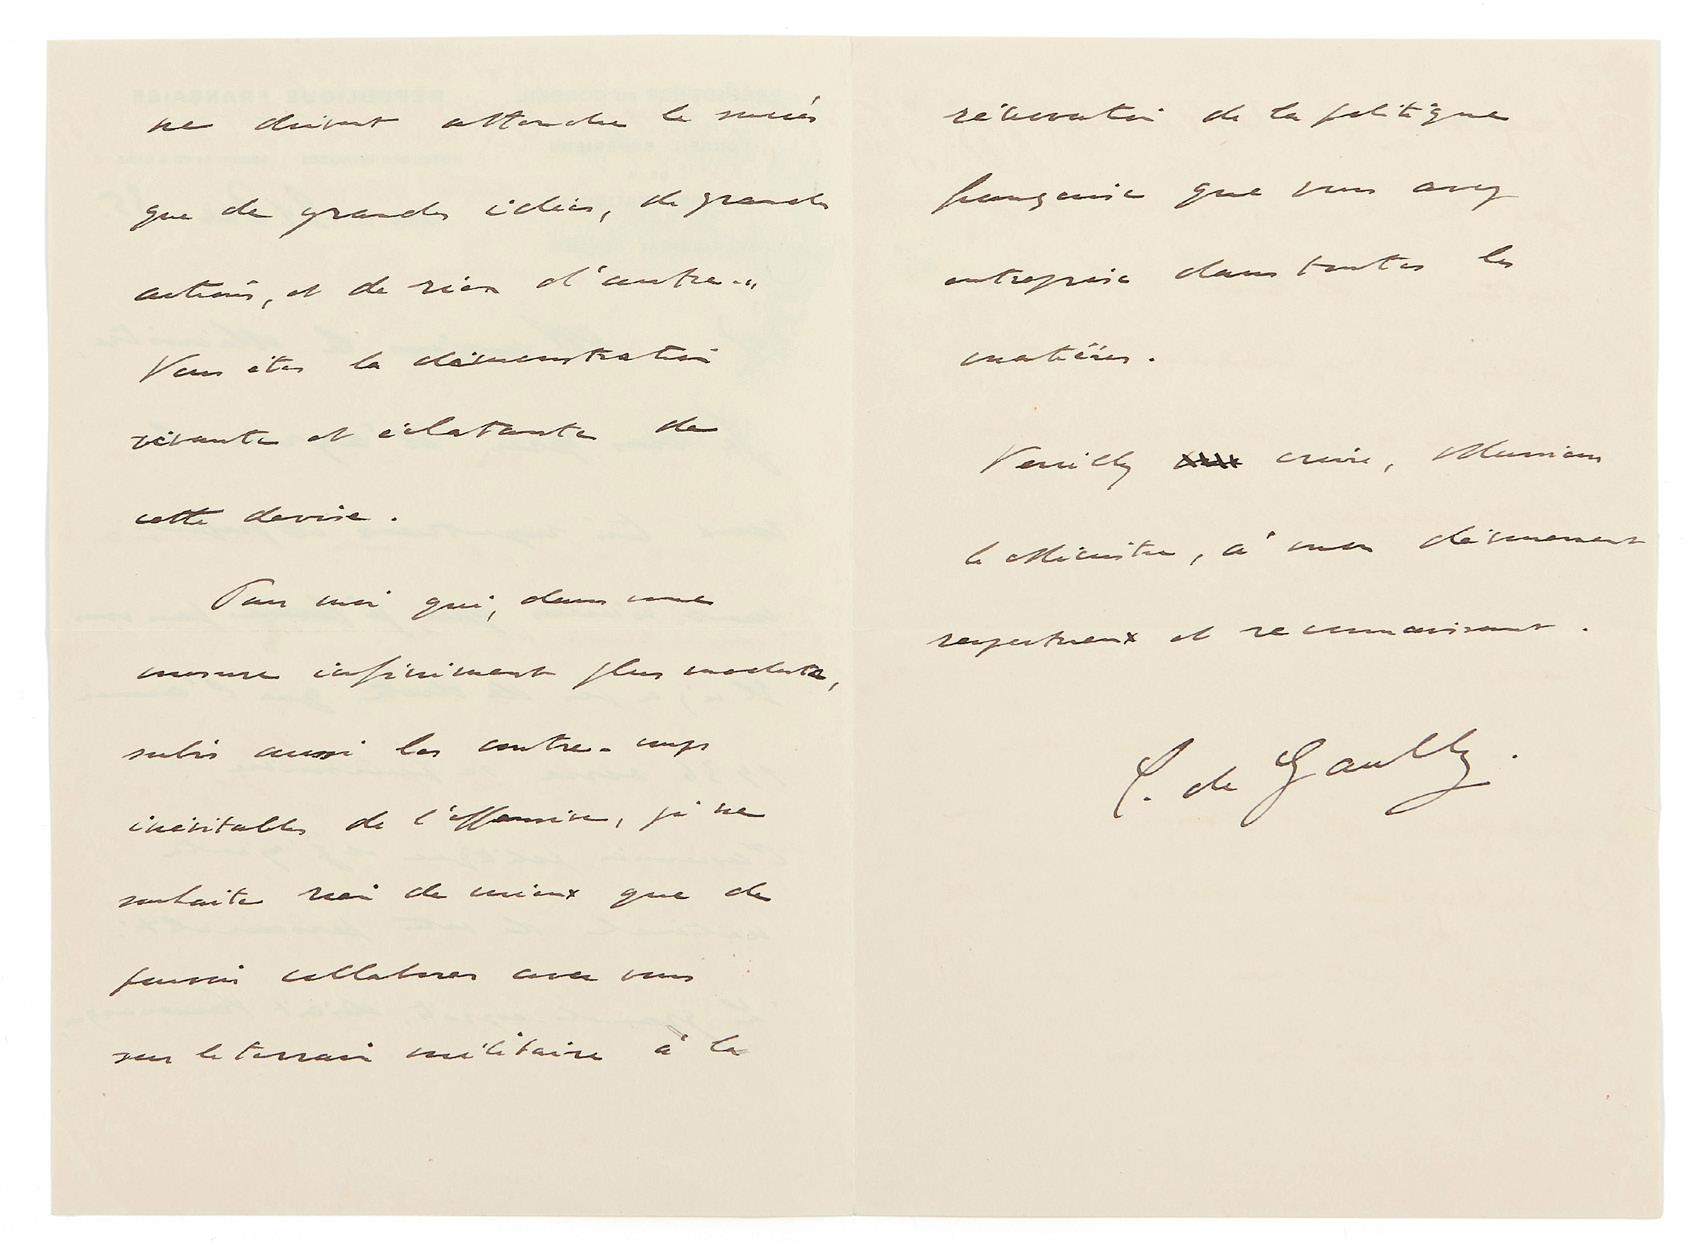 ne doivent attendre le succès
que de grandes idées, de grandes
actions, et de rien d'autre...
Vous êtes la démonstration
vivante et éclatante de
cette devise.
Pour moi qui, dans une
mesure infiniment plus modeste,
subis aussi les contre-coups
inévitables de l'offensive, je ne
souhaite rien de mieux que de
pouvoir collaborer avec vous
sur le terrain militaire à la
rénovation de la politique
française que vous avez
entreprise dans toutes les
matières.
Veuillez croire, Monsieur
le Ministre, à mon dévouement
respectueux et reconnaissant.
C. de Gaulle.